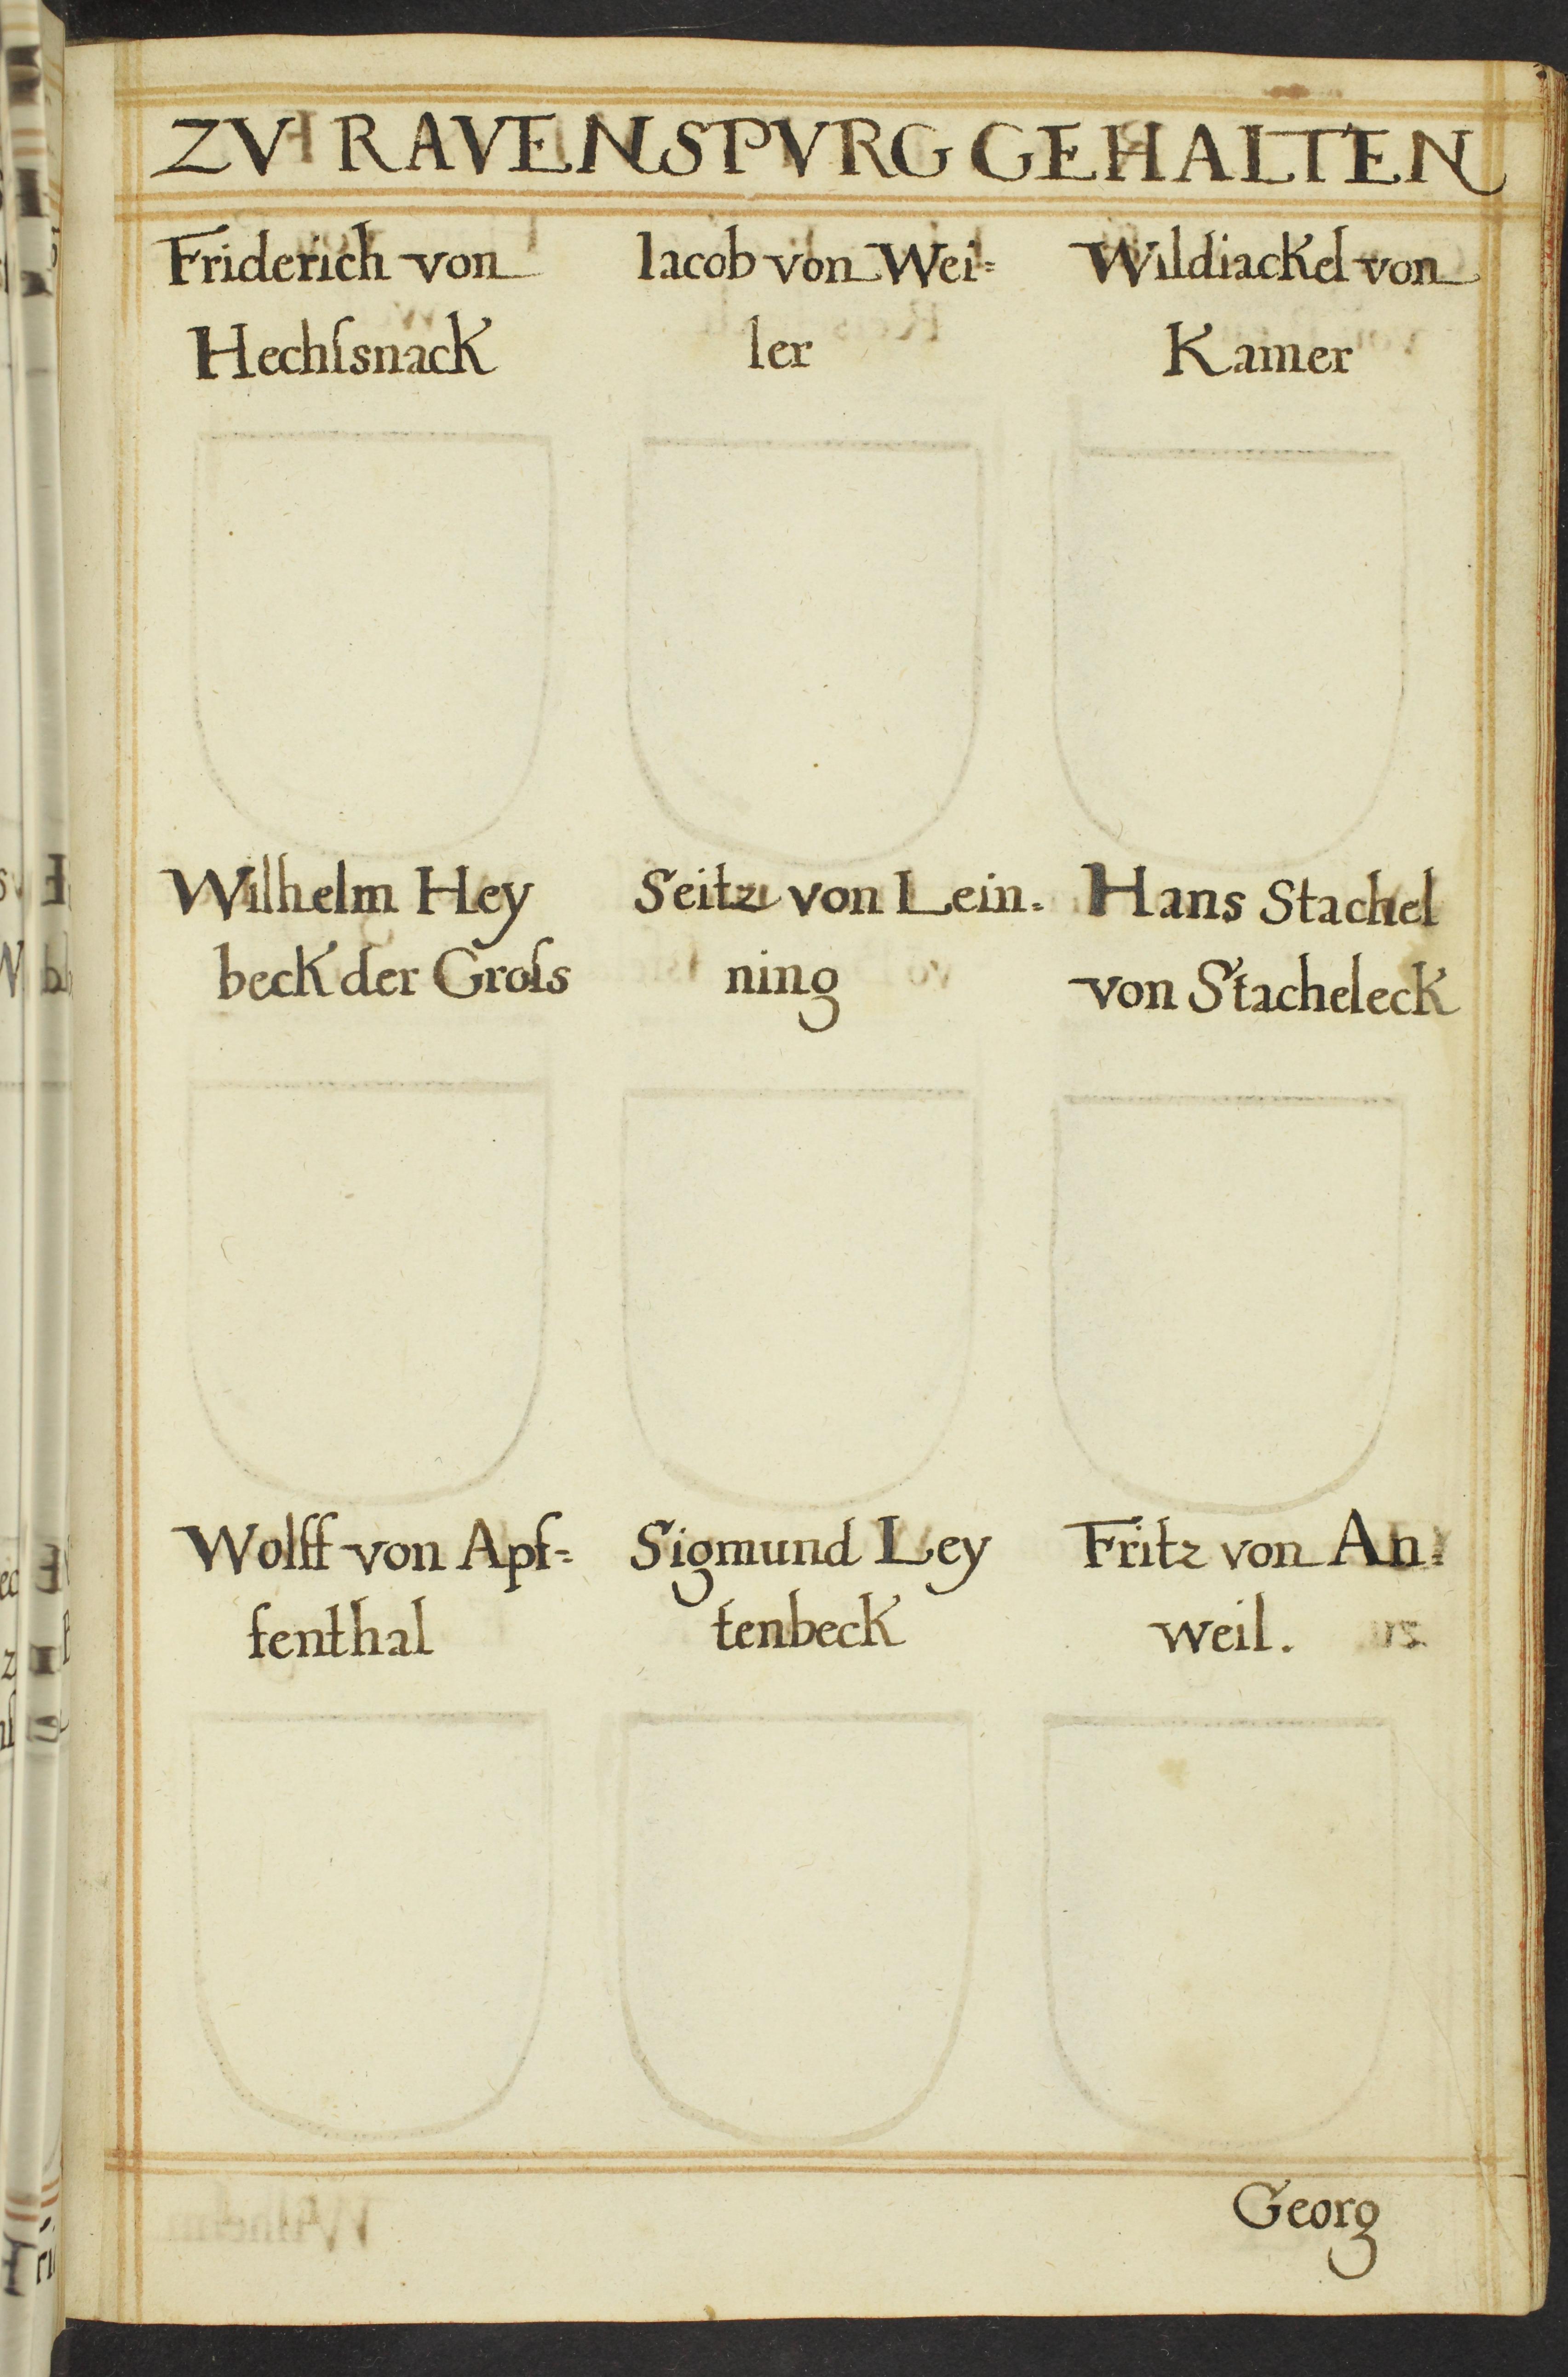 ZV RAVENSPVRG GEHALTEN
Friderich von
Hechſsnack
Iacob von Wei=
ler
Wildiackel von
Kamer
Wilhelm Hey
beck der Groſs
Seitz von Lein=
ning
Hans Stachel
von Stacheleck
Wolff von Apf=
fenthal
Sigmund Ley
tenbeck
Fritz von An=
weil.
Georg